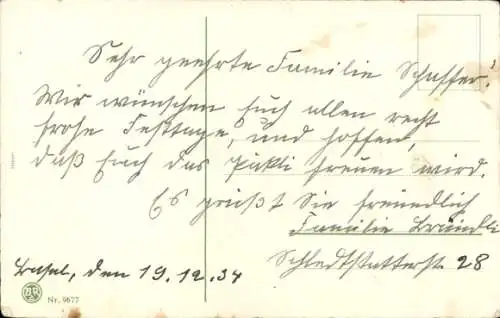 Sehr geehrte Familie Schaffer!
Wir wünschen Euch allen recht
frohe Festtage, und hoffen,
daß Euch das Päkli freuen wird.
Es grüßt Sie freundlich
Familie Bründli
Basel, den 19.12.34
Schlettstatterst. 28
Nr. 9677